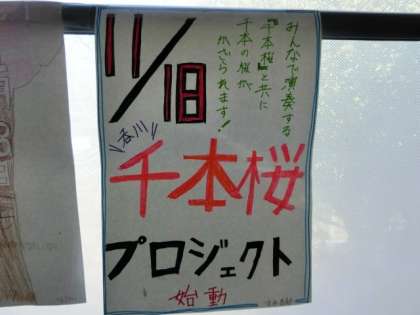 11/18
みんなで演奏する
『千本桜』と共に
千本の桜が
かざられます!
呑川
千本桜
プロジェクト
始動